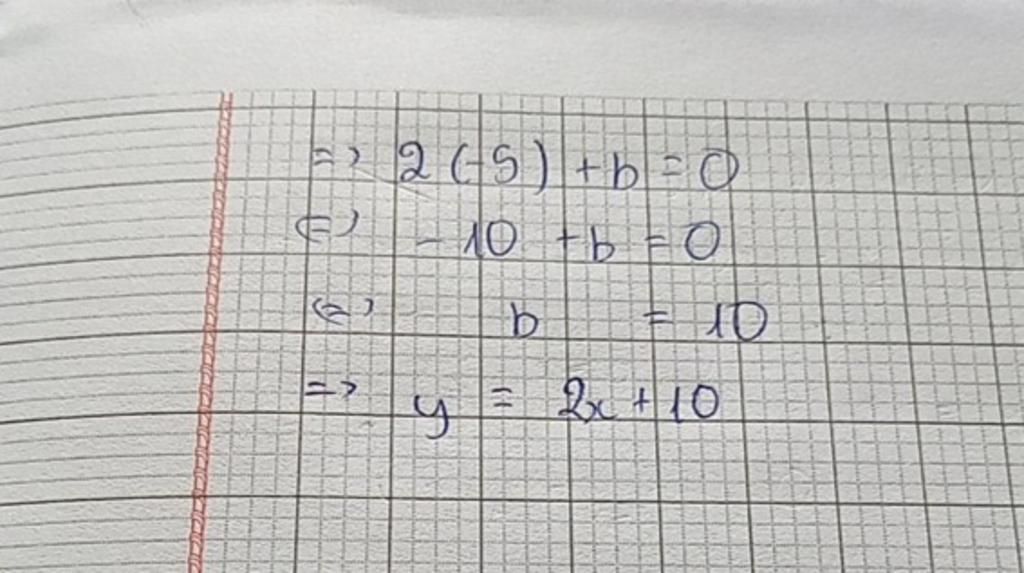 => 2(-5) + b = 0
<=> -10 + b = 0
<=> b = 10
=> y = 2x + 10